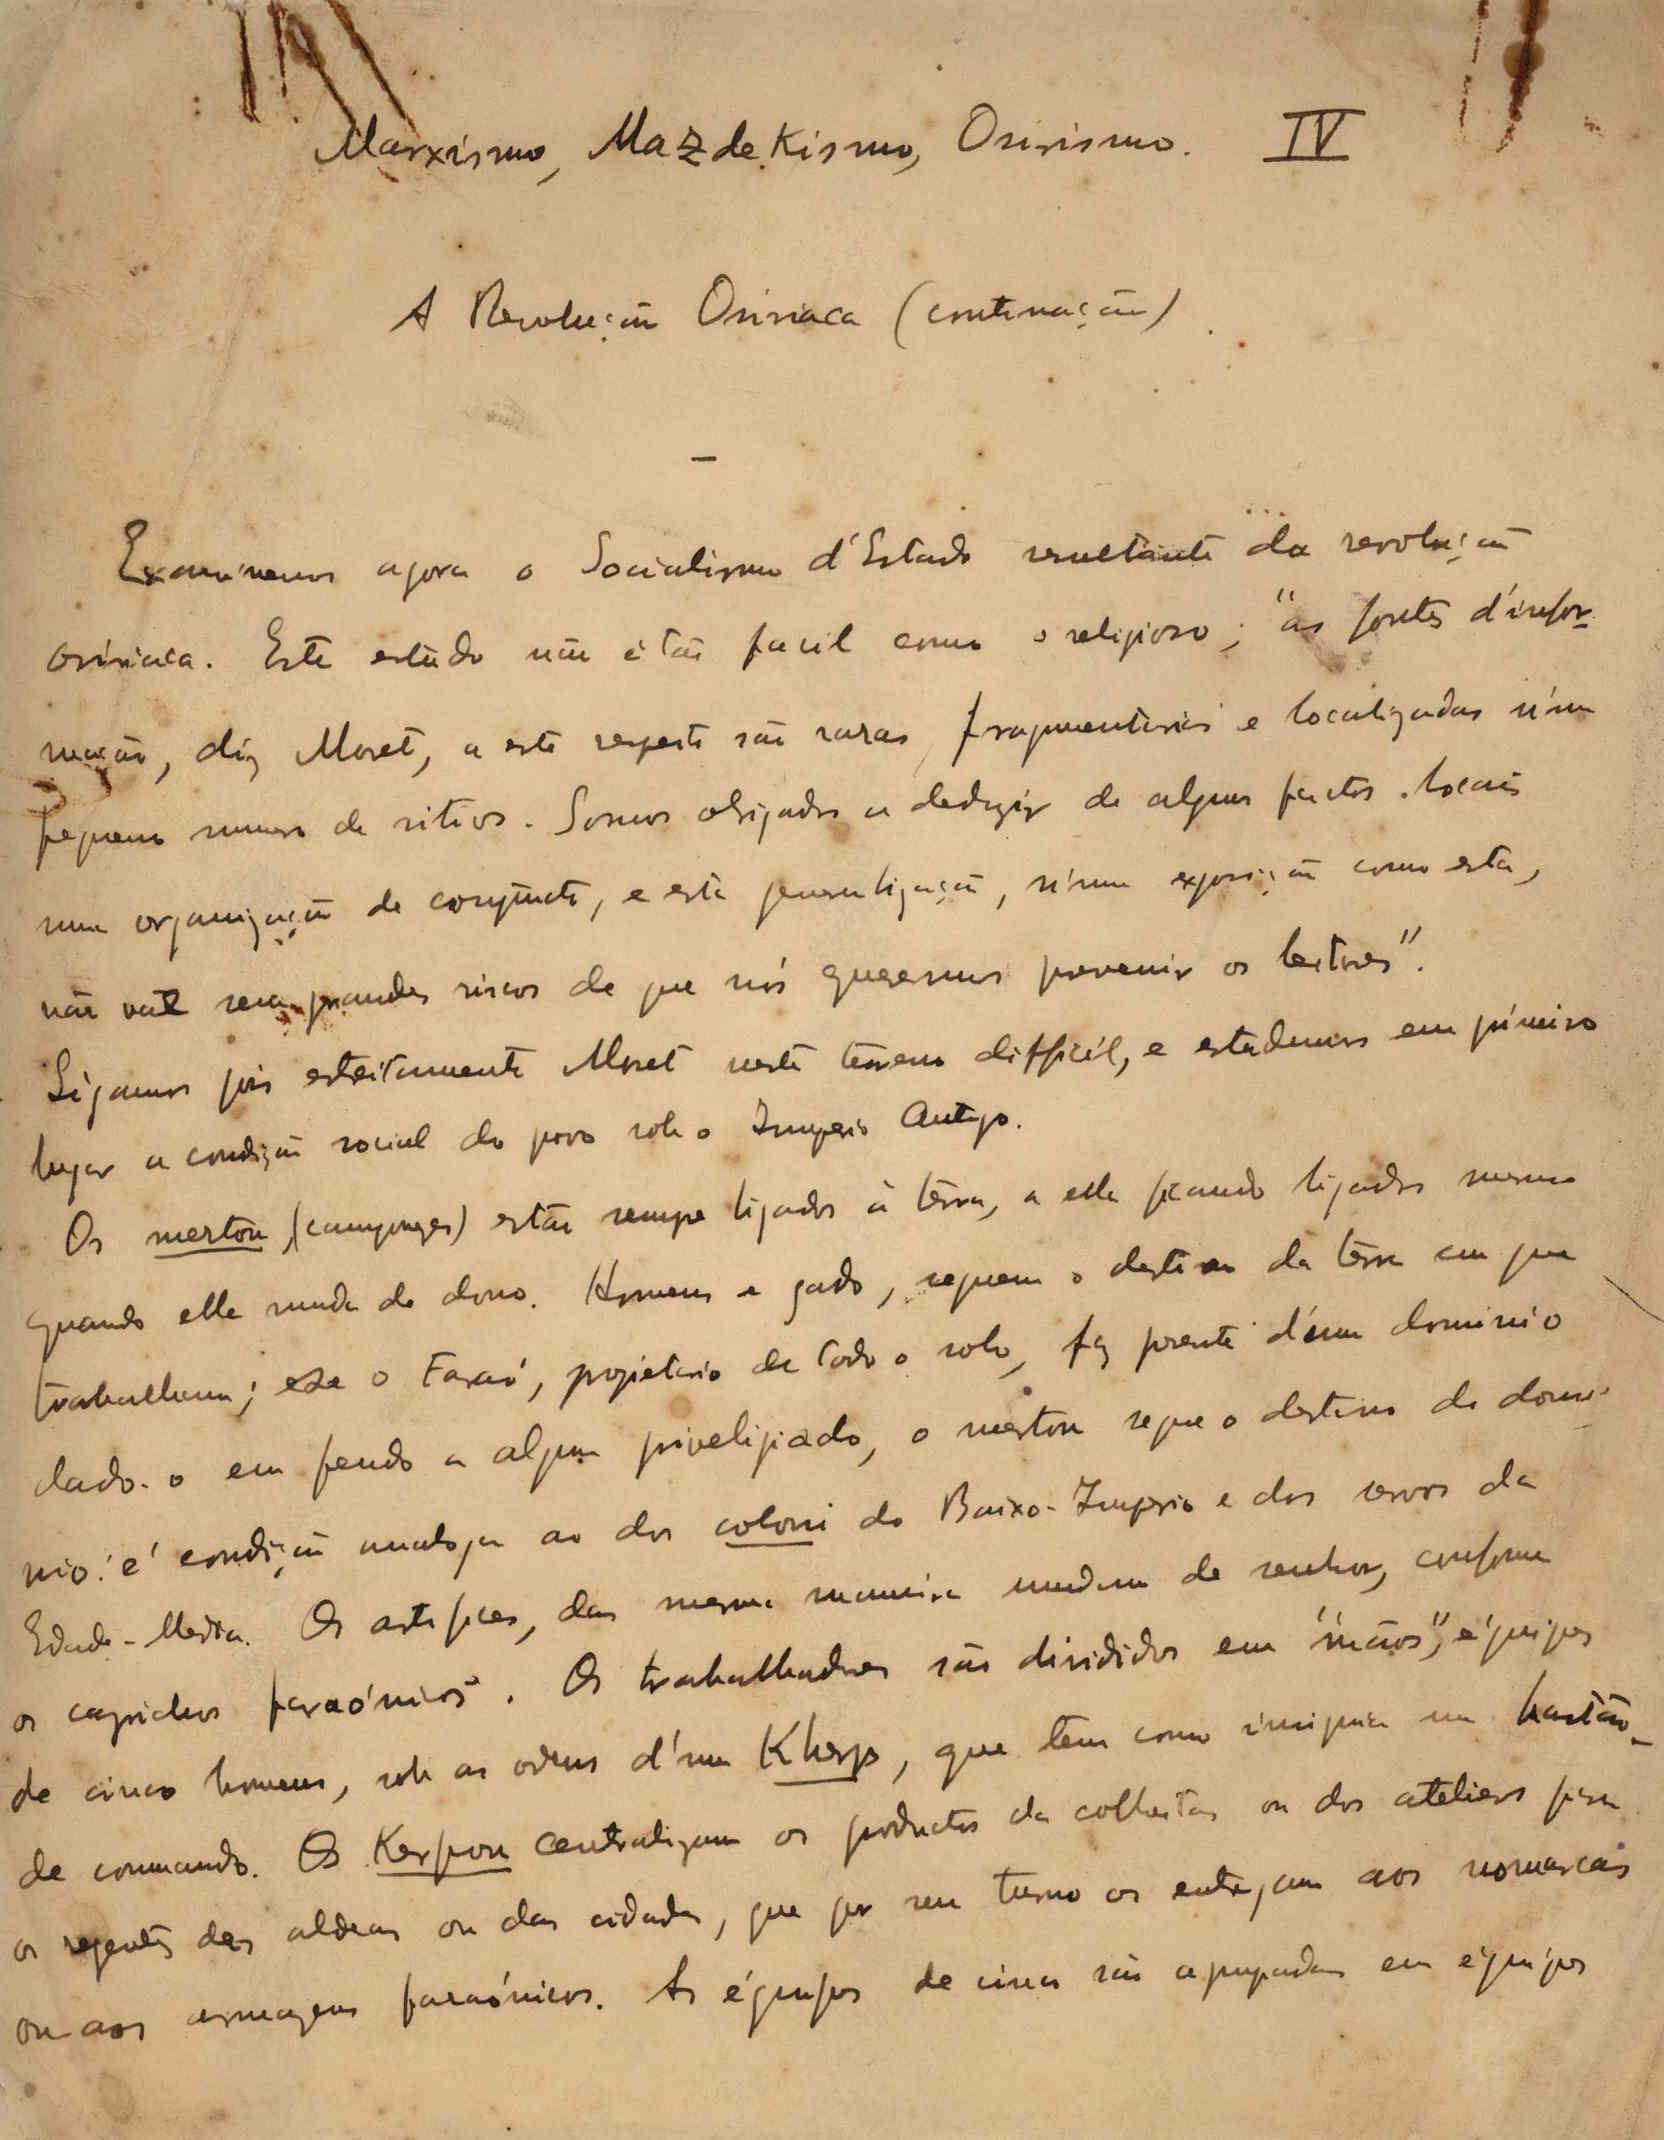 Marxismo, Mazdekismo, Osirismo. IV
A Revolução Osiriaca (continuação)
Examinemos agora o Socialismo d'Estado resultante da revolução
osiriaca. Este estudo não é tão facil como o religioso; "as fontes d'infor-
mação, diz Moret, a este respeito são raras, fragmentarias e localizadas n'um
pequeno numero de sitios. Somos obrigados a deduzir de alguns factos locais
uma organização de conjuncto, e esta generalização, n'uma exposição como esta,
não vae sem grandes riscos de que nós queremos prevenir os leitores".
Sigamos pois estreitamente Moret neste terreno difficil, e estudemos em primeiro
lugar a condição social do povo sob o Imperio Antigo.
Os mertou (camponezes) estão sempre ligados á terra, a ella ficando ligados mesmo
quando ella muda de dono. Homens e gado, seguem o destino da terra em que
trabalham; se o Faraó, proprietario de todo o solo, faz presente d'um dominio
dado-o em feudo a algum priveligiado, o mertou segue o destino do domi-
nio: é condição analoga ao dos coloni do Baixo-Imperio e dos servos da
Edade-Media. Os artifices, da mesma maneira mudam de senhor, conforme
os caprichos faraónicos. Os trabalhadores são divididos em "mãos", équipes
de cinco homens, sob as ordens d'um Kherp, que tem como insignia um bastão
de commando. Os Kerpou centralizam os productos da colheitas ou dos ateliers para
os regentes das aldeas ou das cidades, que por seu turno os entregam aos nomarcas
ou aos armazens faraónicos. As équipes de cinco são agrupadas em équipes